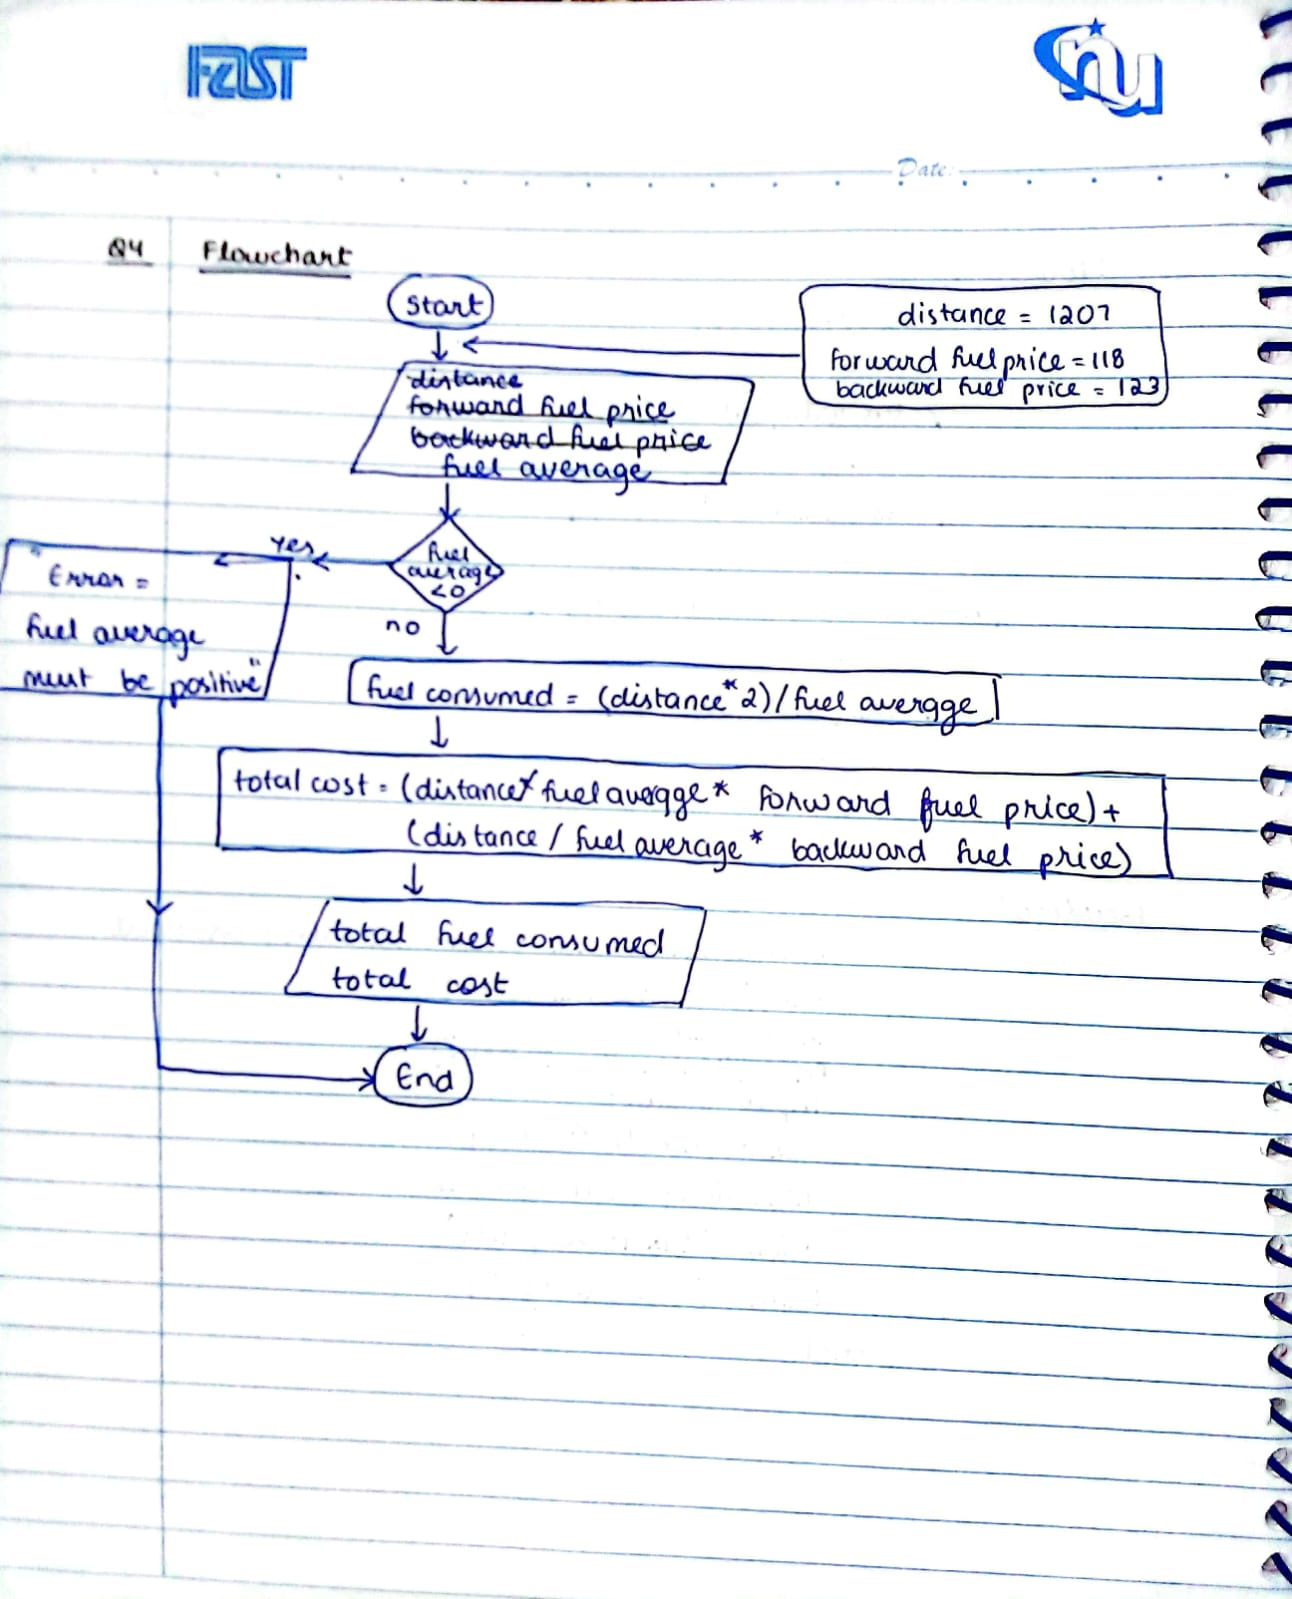 FAST
nu
Date:
Q4 Flowchart
Start
distance = 1207
forward fuel price = 118
backward fuel price = 123
distance
forward fuel price
backward fuel price
fuel average
fuel
average
<0
yes
"Error =
fuel average
must be positive"
no
fuel consumed = (distance*2)/fuel average
total cost = (distance*fuel average* forward fuel price)+
(distance / fuel average* backward fuel price)
total fuel consumed
total cost
End